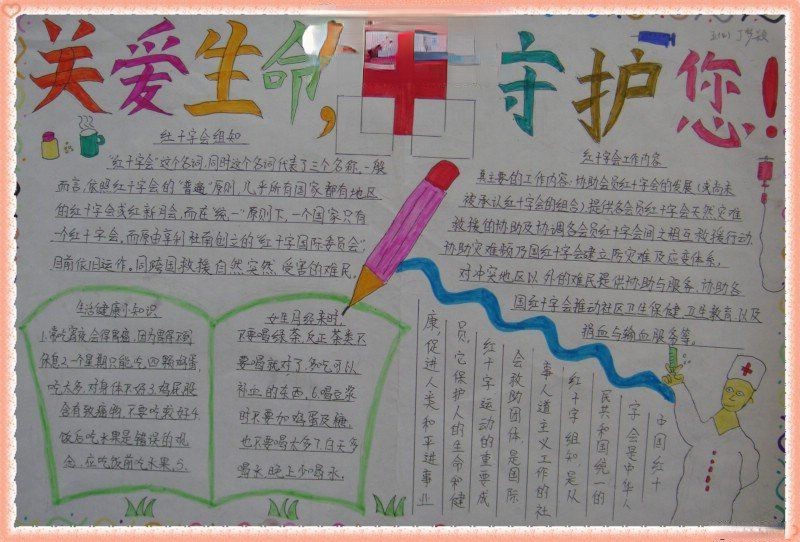 关爱生命, 守护您!
红十字会组知
"红十字会"这个名词,同时这个名词代表了三个名称,一般
而言,依照红十字会的"普遍"原则,几乎所有国家都有地区
的红十字会或红新月会,而在"统一"原则下,一个国家只有
一个红十字会,而原由亨利杜南创立的"红十字国际委员会"
目前依旧运作。同跨国救援自然突然、受害的难民。
红十字会工作内容
其主要的工作内容:协助会员红十字会的发展(或尚未
被承认红十字会的组合)提供各会员红十字会天然灾难
救援的协助及协调各会员红十字会间之相互救援行动,
协助灾难频及国红十字会建立防灾难及应变体系,
对冲突地区以外的难民提供协助与服务,协助各
国红十字会推动社区卫生保健,卫生教育以及
捐血与输血服务等。
生活健康小知识
1.常吃宵夜,会得胃癌,因为胃得不到
休息2.一个星期只能吃四颗鸡蛋,
吃太多,对身体不好3.鸡屁股
含有致癌物,不要吃较好4.
饭后吃水果是错误的观
念,应吃饭前吃水果。5.
女生月经来时,
不要喝绿茶,反正茶类不
要喝就好了,多吃可以
补血的东西。6.喝豆浆
时不要加鸡蛋及糖,
也不要喝太多7.白天多
喝水,晚上少喝水。
中国红十
字会是中华人
民共和国统一的
红十字组织,是从
事人道主义工作的社
会救助团体,是国际
红十字运动的重要成
员,它保护人的生命和健
康,促进人类和平进事业